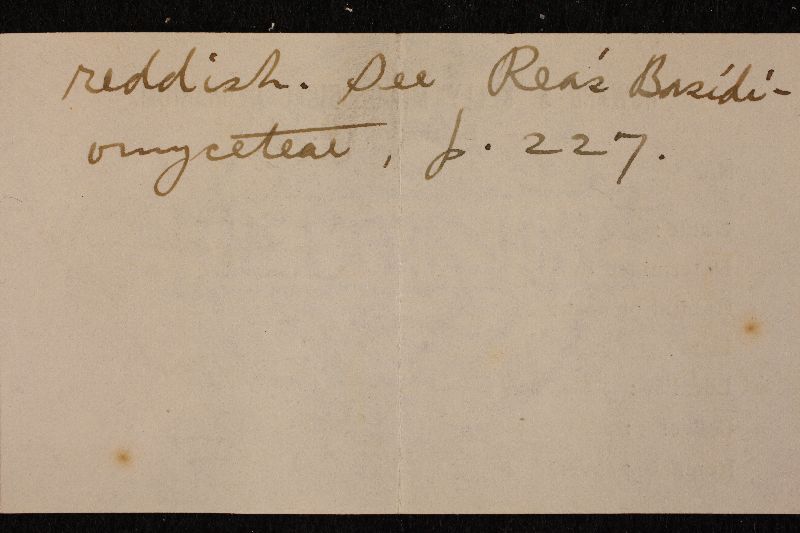 reddish. See Rea's Basidi-
omyceteae, p. 227.